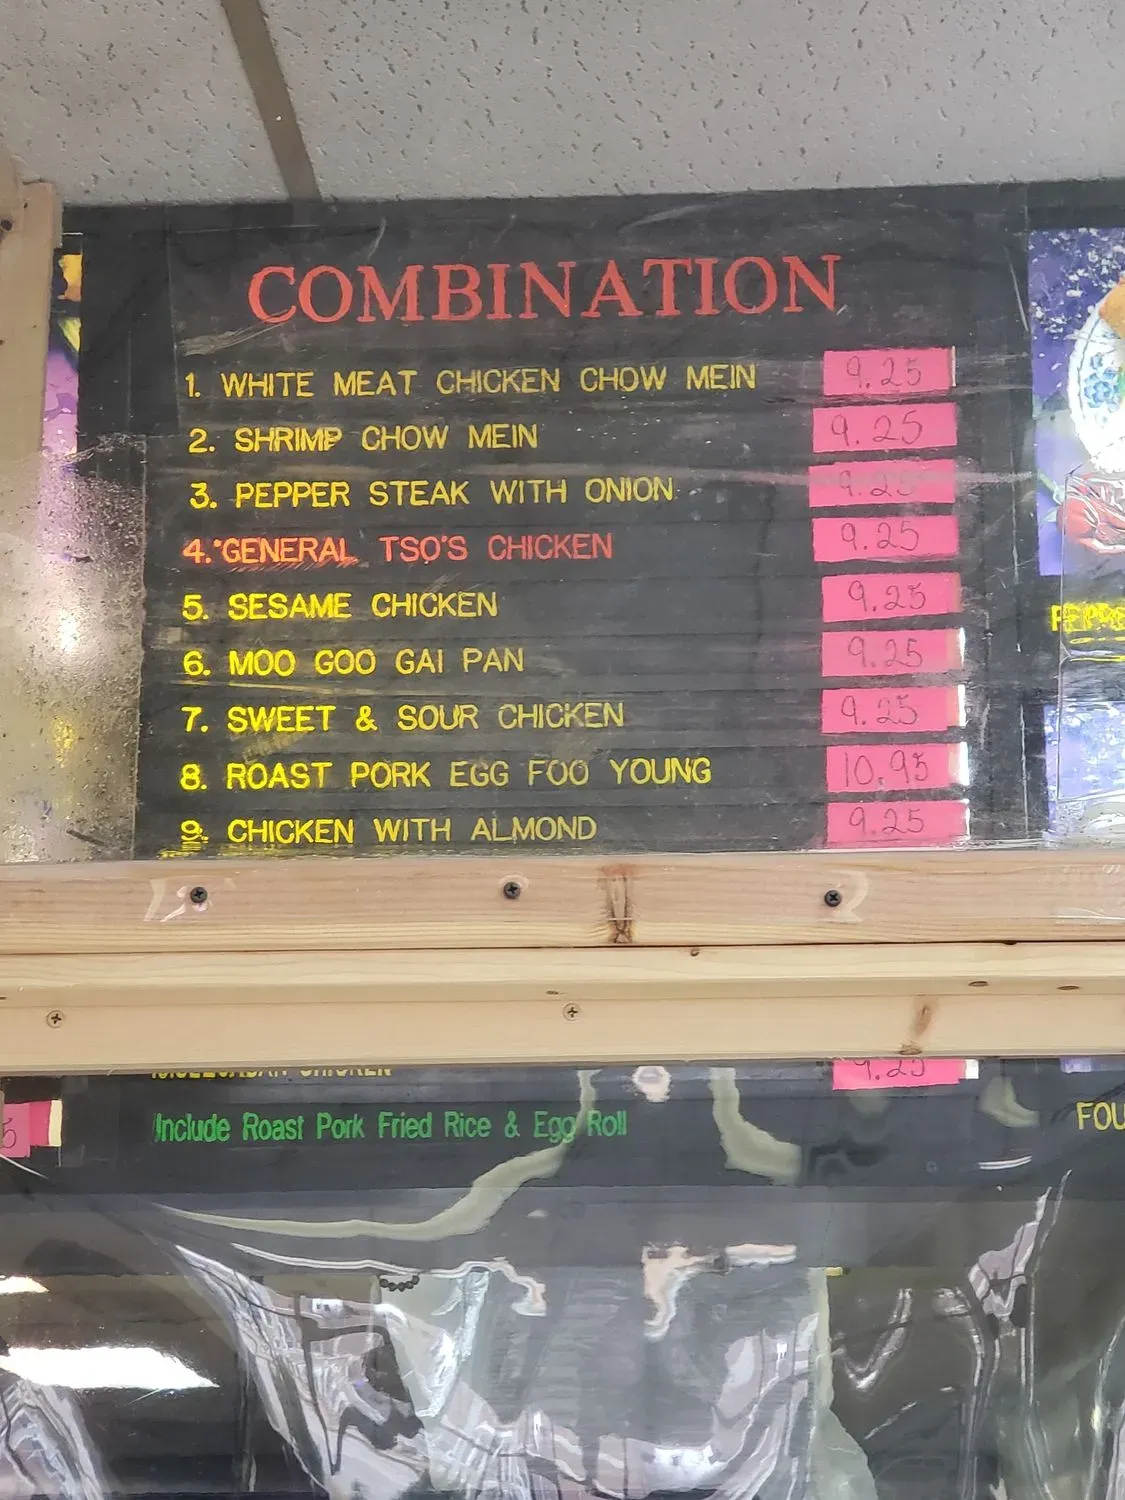 COMBINATION
1. WHITE MEAT CHICKEN CHOW MEIN 9.25
2. SHRIMP CHOW MEIN 9.25
3. PEPPER STEAK WITH ONION 9.25
4. GENERAL TSO'S CHICKEN 9.25
5. SESAME CHICKEN 9.25
6. MOO GOO GAI PAN 9.25
7. SWEET & SOUR CHICKEN 9.25
8. ROAST PORK EGG FOO YOUNG 10.95
9. CHICKEN WITH ALMOND 9.25
CHICKEN 9.25
Include Roast Pork Fried Rice & Egg Roll